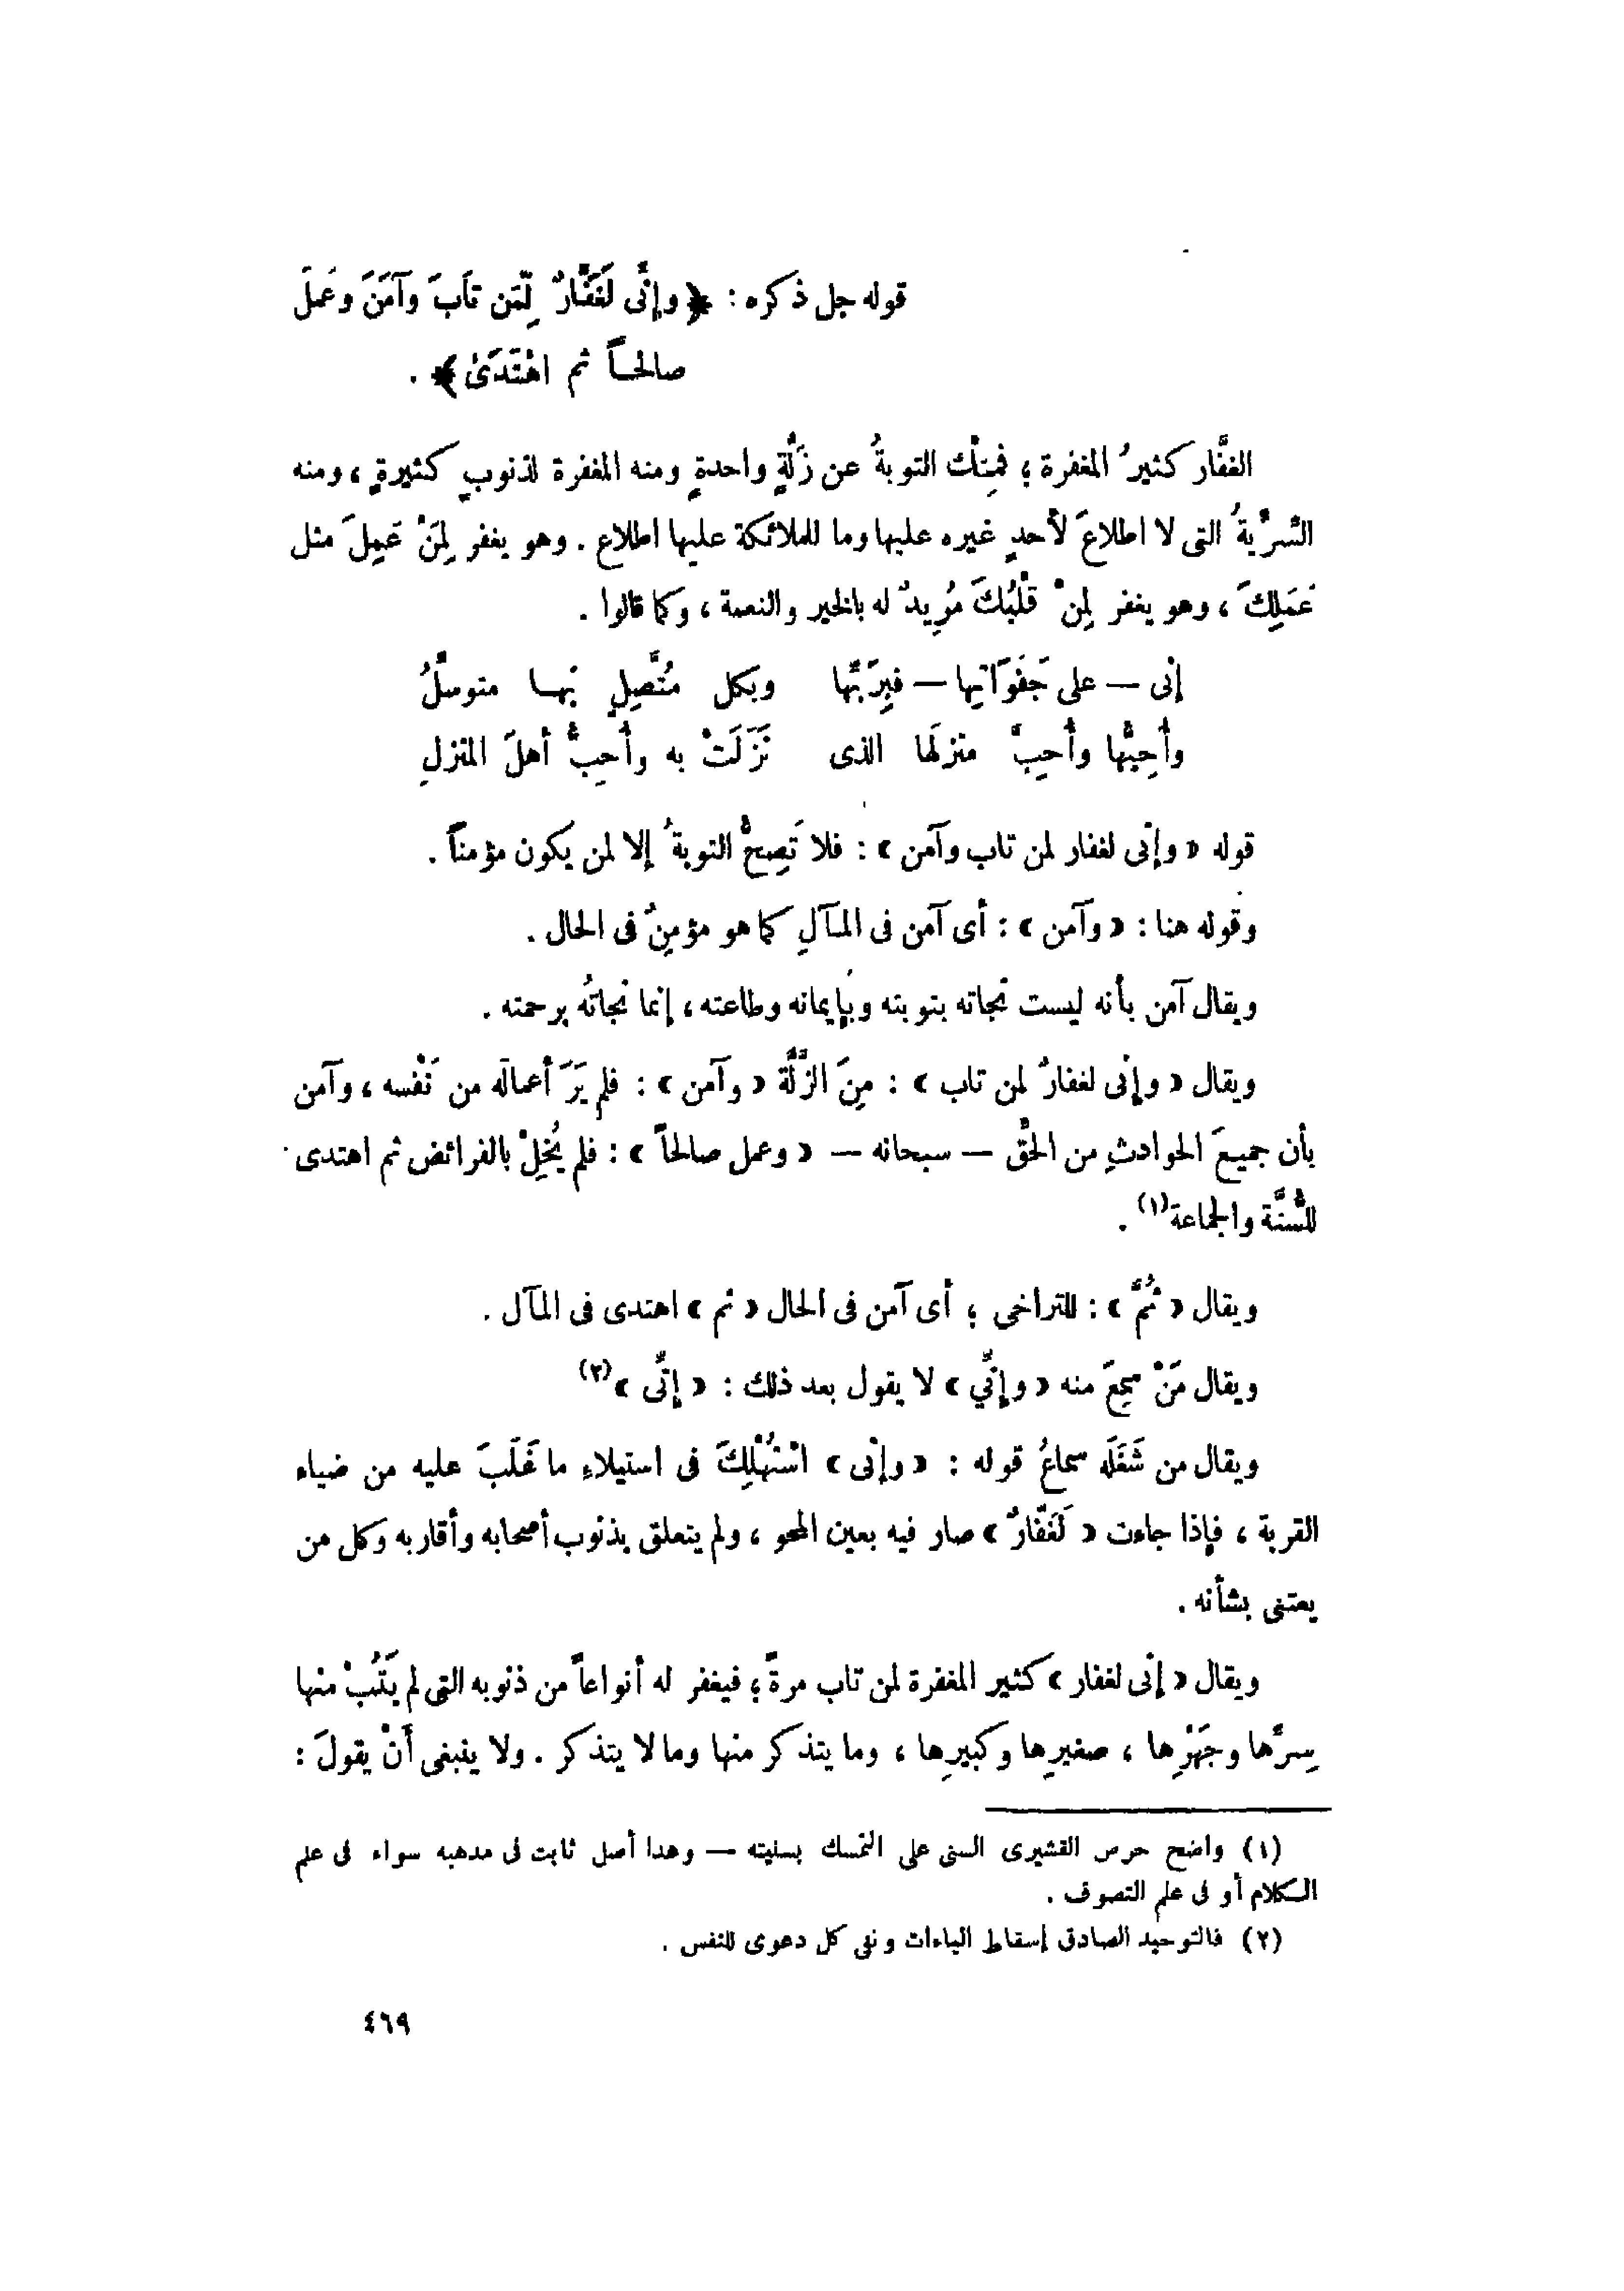 قوله جل ذكره : ﴿ وإنِّى لَغَفَّارٌ لِّمَن تَابَ وآمَنَ وعَمِلَ
صالحــاً ثم اهْتَدَىٰ﴾ .
الغفَّار كثيرُ المغفرة ؛ فمِنْك التوبةُ عن زَلَّةٍ واحدةٍ ومنه المغفرة لذنوبٍ كثيرةٍ ، ومنه
السِّرِّيةُ التى لا اطلاعَ لأحدٍ غيره عليها وما للملائكة عليها اطلاع . وهو يغفر لِمَنْ عَمِلَ مثل
عَمَلِكَ ، وهو يغفر لِمن قلْبُكَ مُرِيدٌ له بالخير والنعمة ، وكما قالوا .
إنِّى — على جَفَوَاتِها — فبِرَبِّها وبكل مُتَّصِلٍ بهــا متوسلُ
وأُحِبُّها وأُحِبُّ منزلَها الذى نَزَلَتْ به وأُحِبُّ أهلَ المنزلِ
قوله « وإنِّى لغفار لمن تاب وآمن » : فلا تَصِحُّ التوبةُ إلا لمن يكون مؤمناً .
وقوله هنا : « وآمن » : أى آمن فى المآلِ كما هو مؤمنٌ فى الحال .
ويقال آمن بأنه ليست نجاته بتوبته وبإيمانه وطاعته ، إنما نجاتُه برحمته .
ويقال « وإنِّى لغفارٌ لمن تاب » : مِنَ الزَّلَّة « وآمن » : فلم يَرَ أعمالَه من نَفْسه ، وآمن
بأن جميعَ الحوادثِ من الحَقِّ — سبحانه — « وعمل صالحاً » : فلم يُخِلْ بالفرائض ثم اهتدى
للسُّنَّة والجماعة(١) .
ويقال « ثُمَّ » : للتراخى ؛ أى آمن فى الحال « ثم » اهتدى فى المآل .
ويقال مَنْ سمِعَ منه « وإنِّي » لا يقول بعد ذلك : « إنِّى »(٢)
ويقال من شَغَلَه سماعُ قوله : « وإنِّى » اسْتُهْلِكَ فى استيلاءِ ما غَلَبَ عليه من ضياء
القربة ، فإذا جاءت « لَغَفَّارٌ » صار فيه بعين المحو ، ولم يتعلق بذنوب أصحابه وأقاربه وكل من
يعتنى بشأنه .
ويقال « إنِّى لغفار » كثير المغفرة لمن تاب مرةً ؛ فيغفر له أنواعاً من ذنوبه التى لم يَتُبْ منها
سِرِّها وجَهْرِها ، صغيرِها وكبيرِها ، وما يتذكر منها وما لا يتذكر . ولا ينبغى أنْ يقولَ :
(١) واضح حرص القشيرى السنى على التمسك بسنيته — وهذا أصل ثابت فى مذهبه سواء فى علم
الكلام أو فى علم التصوف .
(٢) فالتوحيد الصادق إسقاط الياءات ونفى كل دعوى للنفس .
٤٦٩